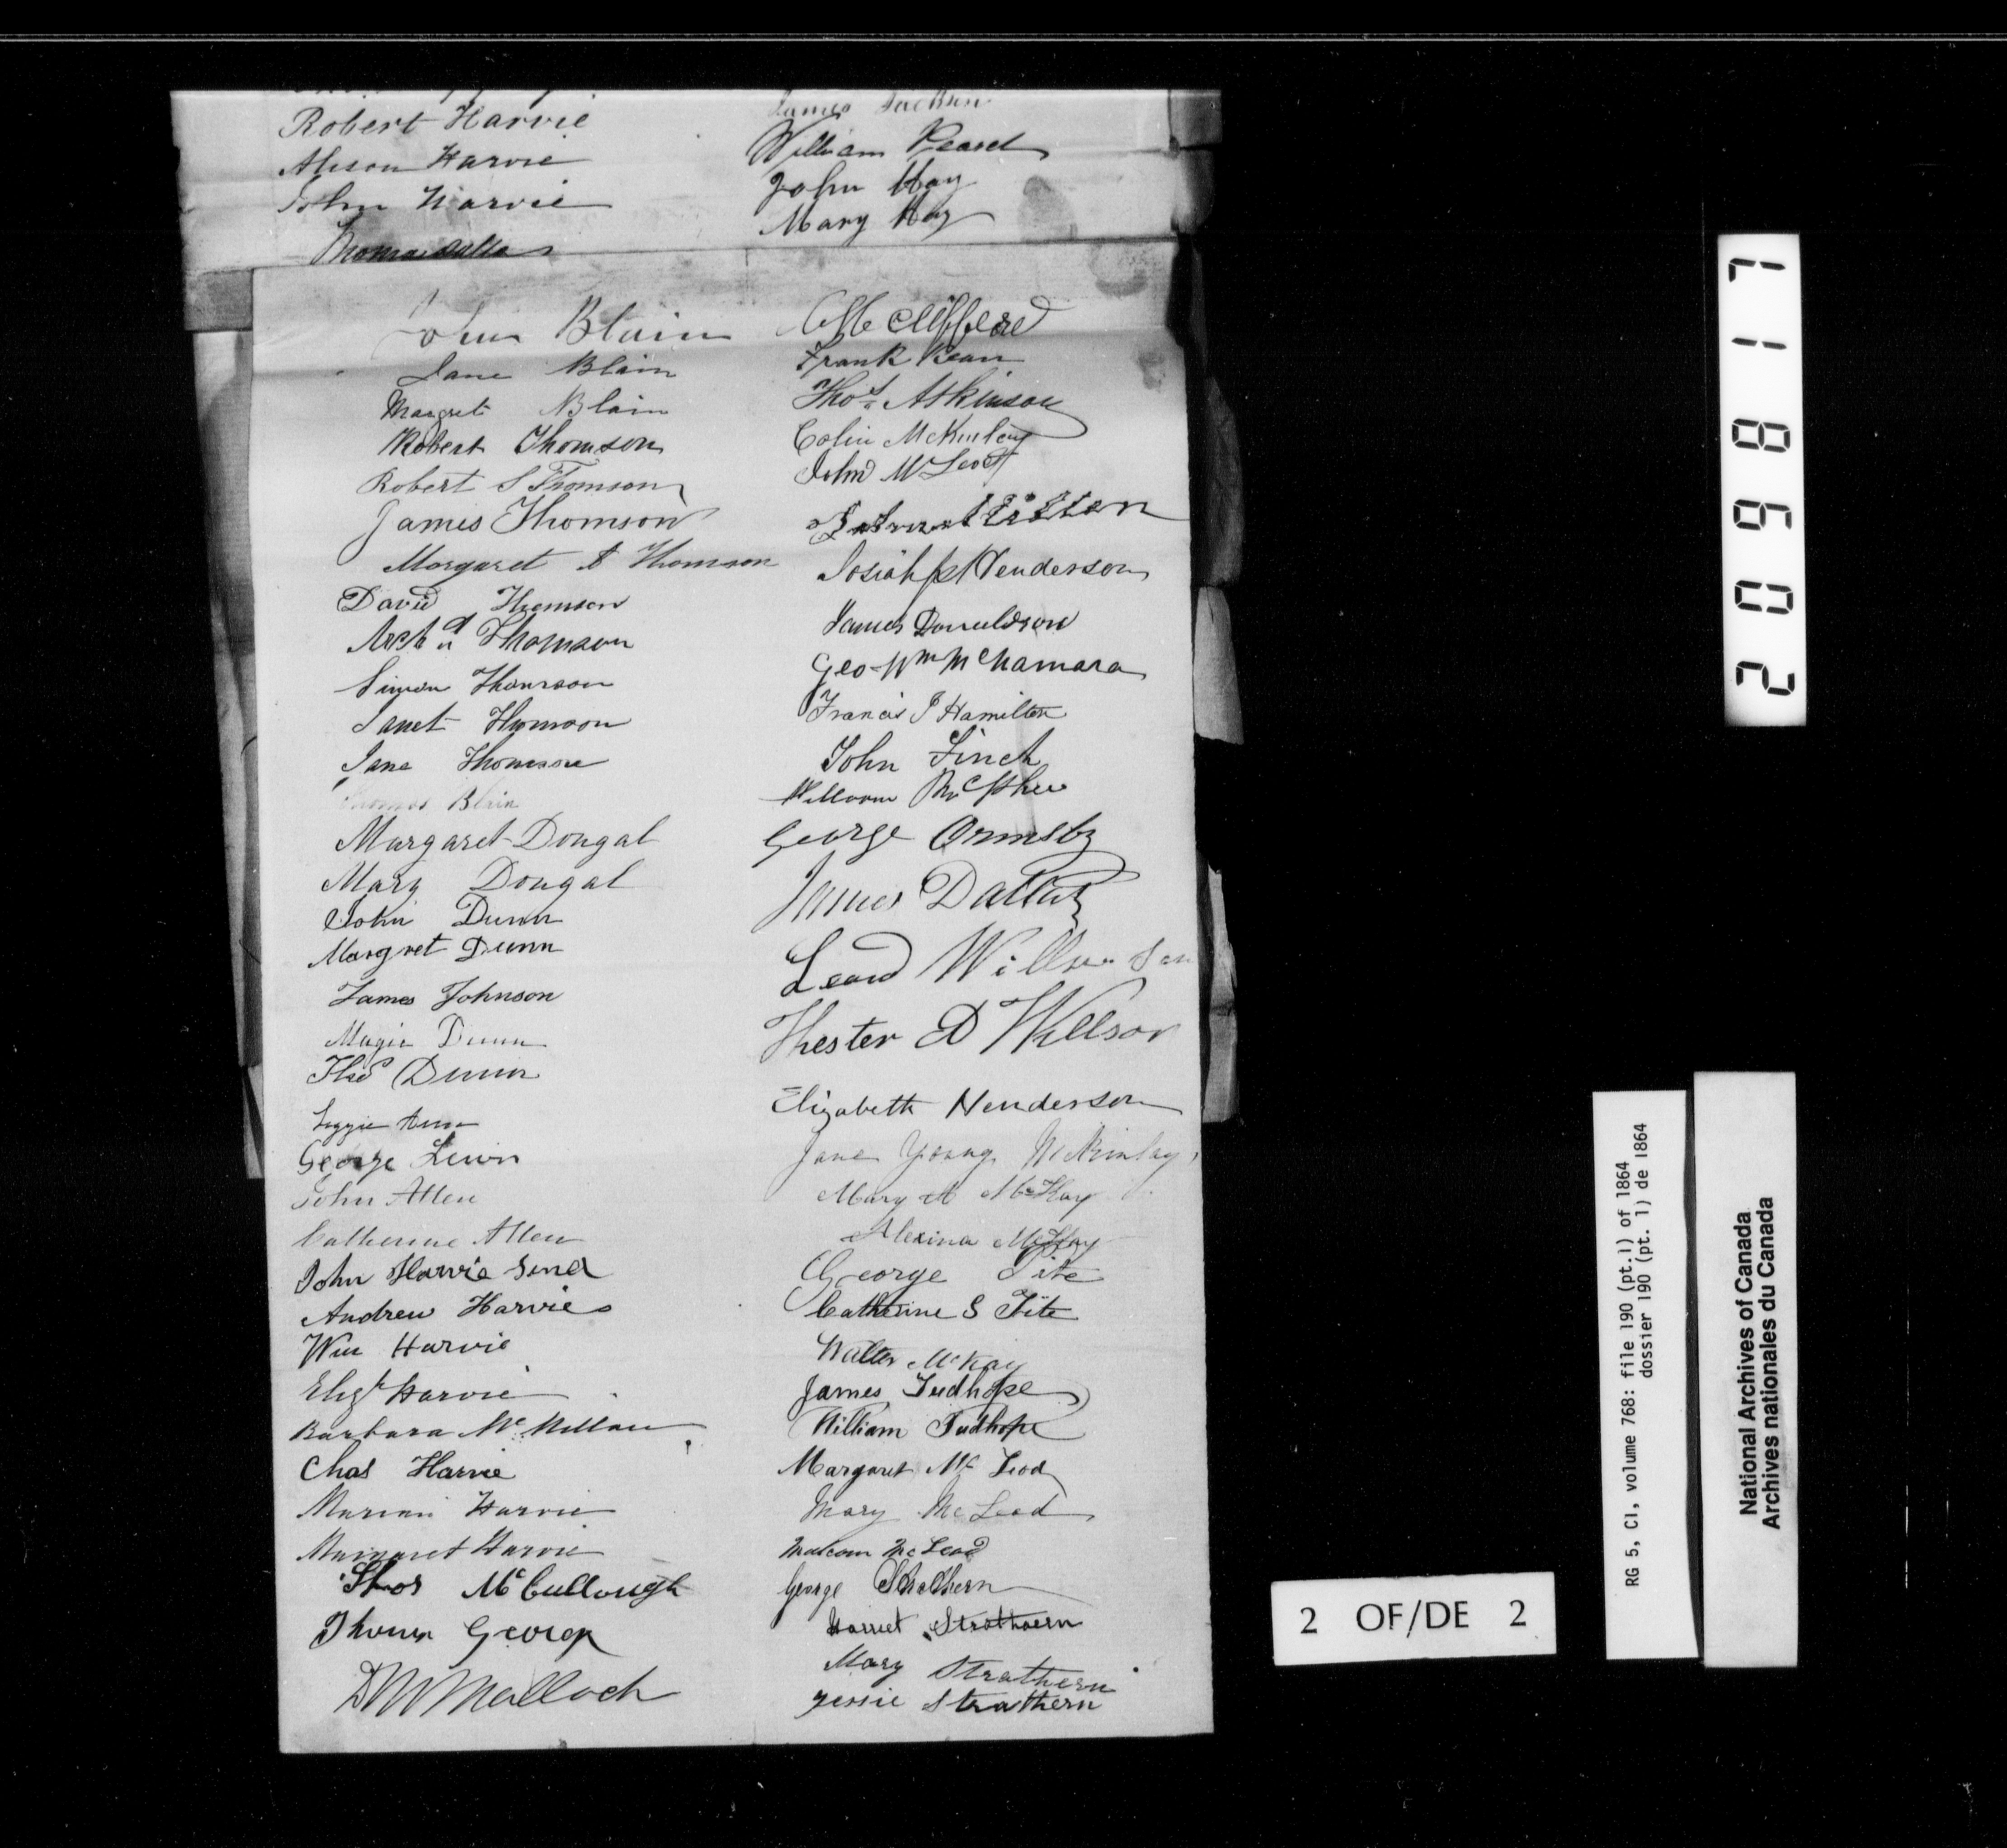 Robert Harvie
Alison Harvie
John Harvie
Thomas
James Jackson
William
John Hay
Mary Hay
John Blain
Jane Blain
Margret Blain
Robert Thomson
Robert S Thomson
James Thomson
Margaret A Thomson
David Thomson
Archd Thomson
Simon Thomson
Janet Thomson
Jane Thomson
Thomas Blain
Margaret Dougal
Mary Dougal
John Dunn
Margret Dunn
James Johnson
Magie Dunn
Thos Dunn
George Lewin
John Allen
Catherine Allen
John Harvie Send
Andrew Harvie
Wm Harvie
Elizh Harvie
Barbara Mc Millan
Chas Harvie
Marian Harvie
Margaret Harvie
Thos McCullough
Thomas George
Malloch
Clifford
Frank Kean
Thos Atkinson
Colin McKinlay
John McLeod
Josiah Henderson
James Donaldson
Geo Wm McNamara
Francis J Hamilton
John Finch
William McPhee
George Ormsby
James
Willson
Hester A Willson
Elizabeth Henderson
Jane Young McKinlay
Mary A McKay
Alexina McKay
George Tite
Catherine S Tite
Walter McKay
James Tudhope
William Tudhope
Margaret Mc Leod
Mary McLeod
Malcom McLeod
George Strathern
Harriet Strathearn
Mary Strathern
Jessie Strathern
2 OF/DE 2
209817
RG 5, C1, volume 768: file 190 (pt.1) of 1864
dossier 190 (pt. 1) de 1864
National Archives of Canada
Archives nationales du Canada